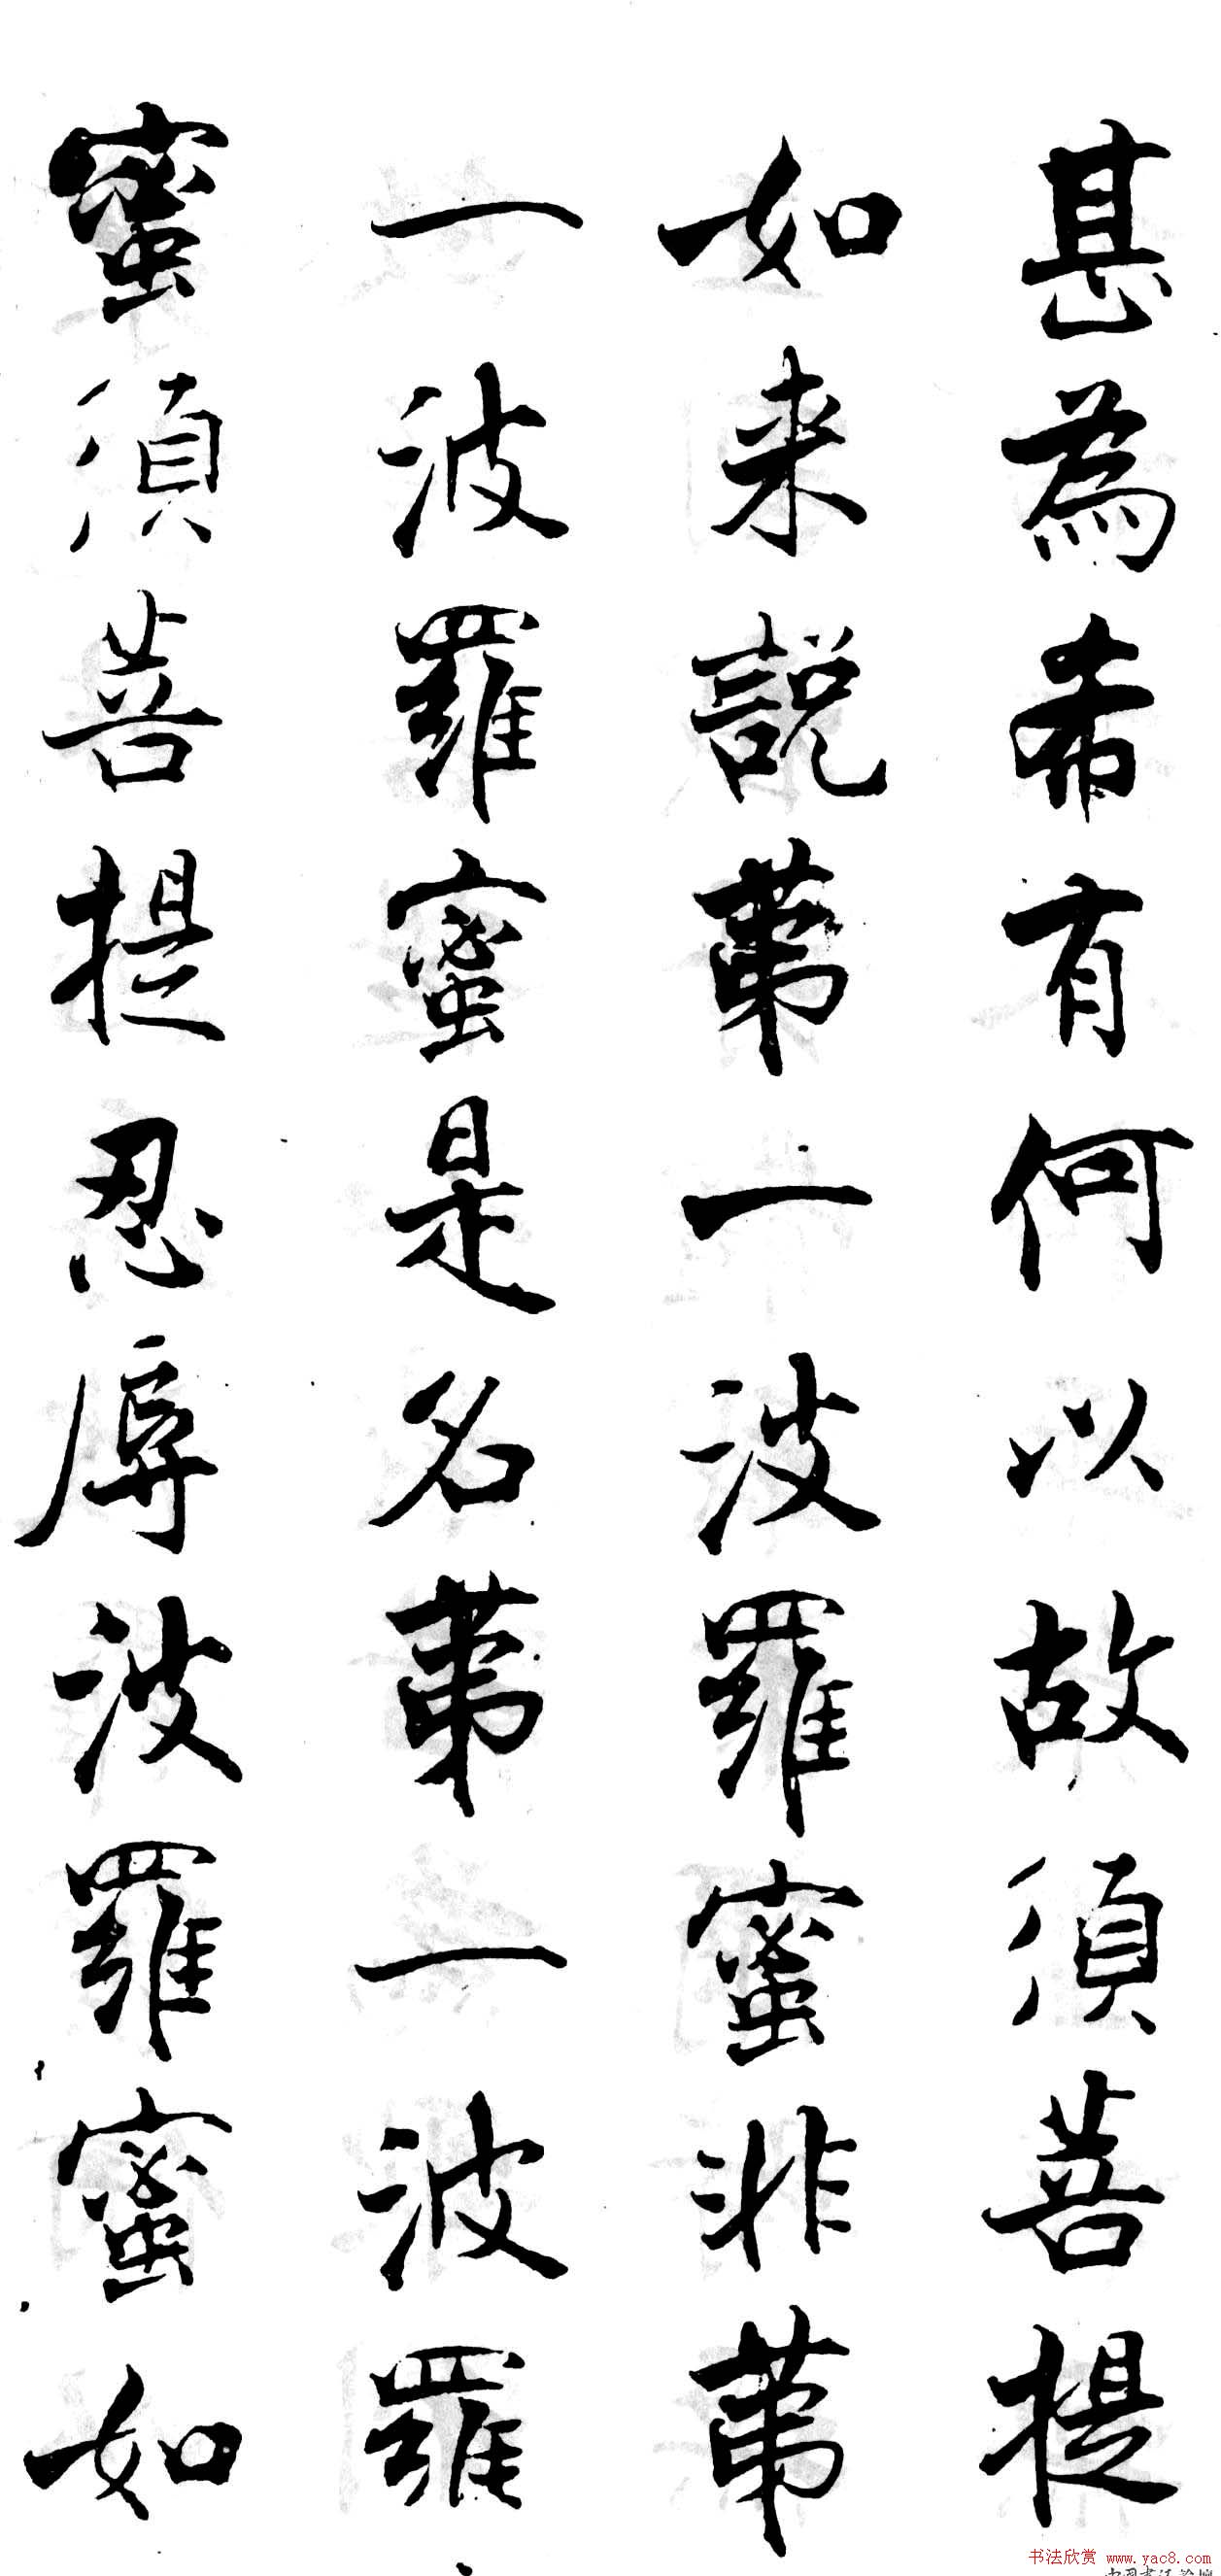 甚為希有何以故須菩提
如来說第一波羅蜜非第
一波羅蜜是名第一波羅
蜜須菩提忍辱波羅蜜如
书法欣赏 www.yac8.com